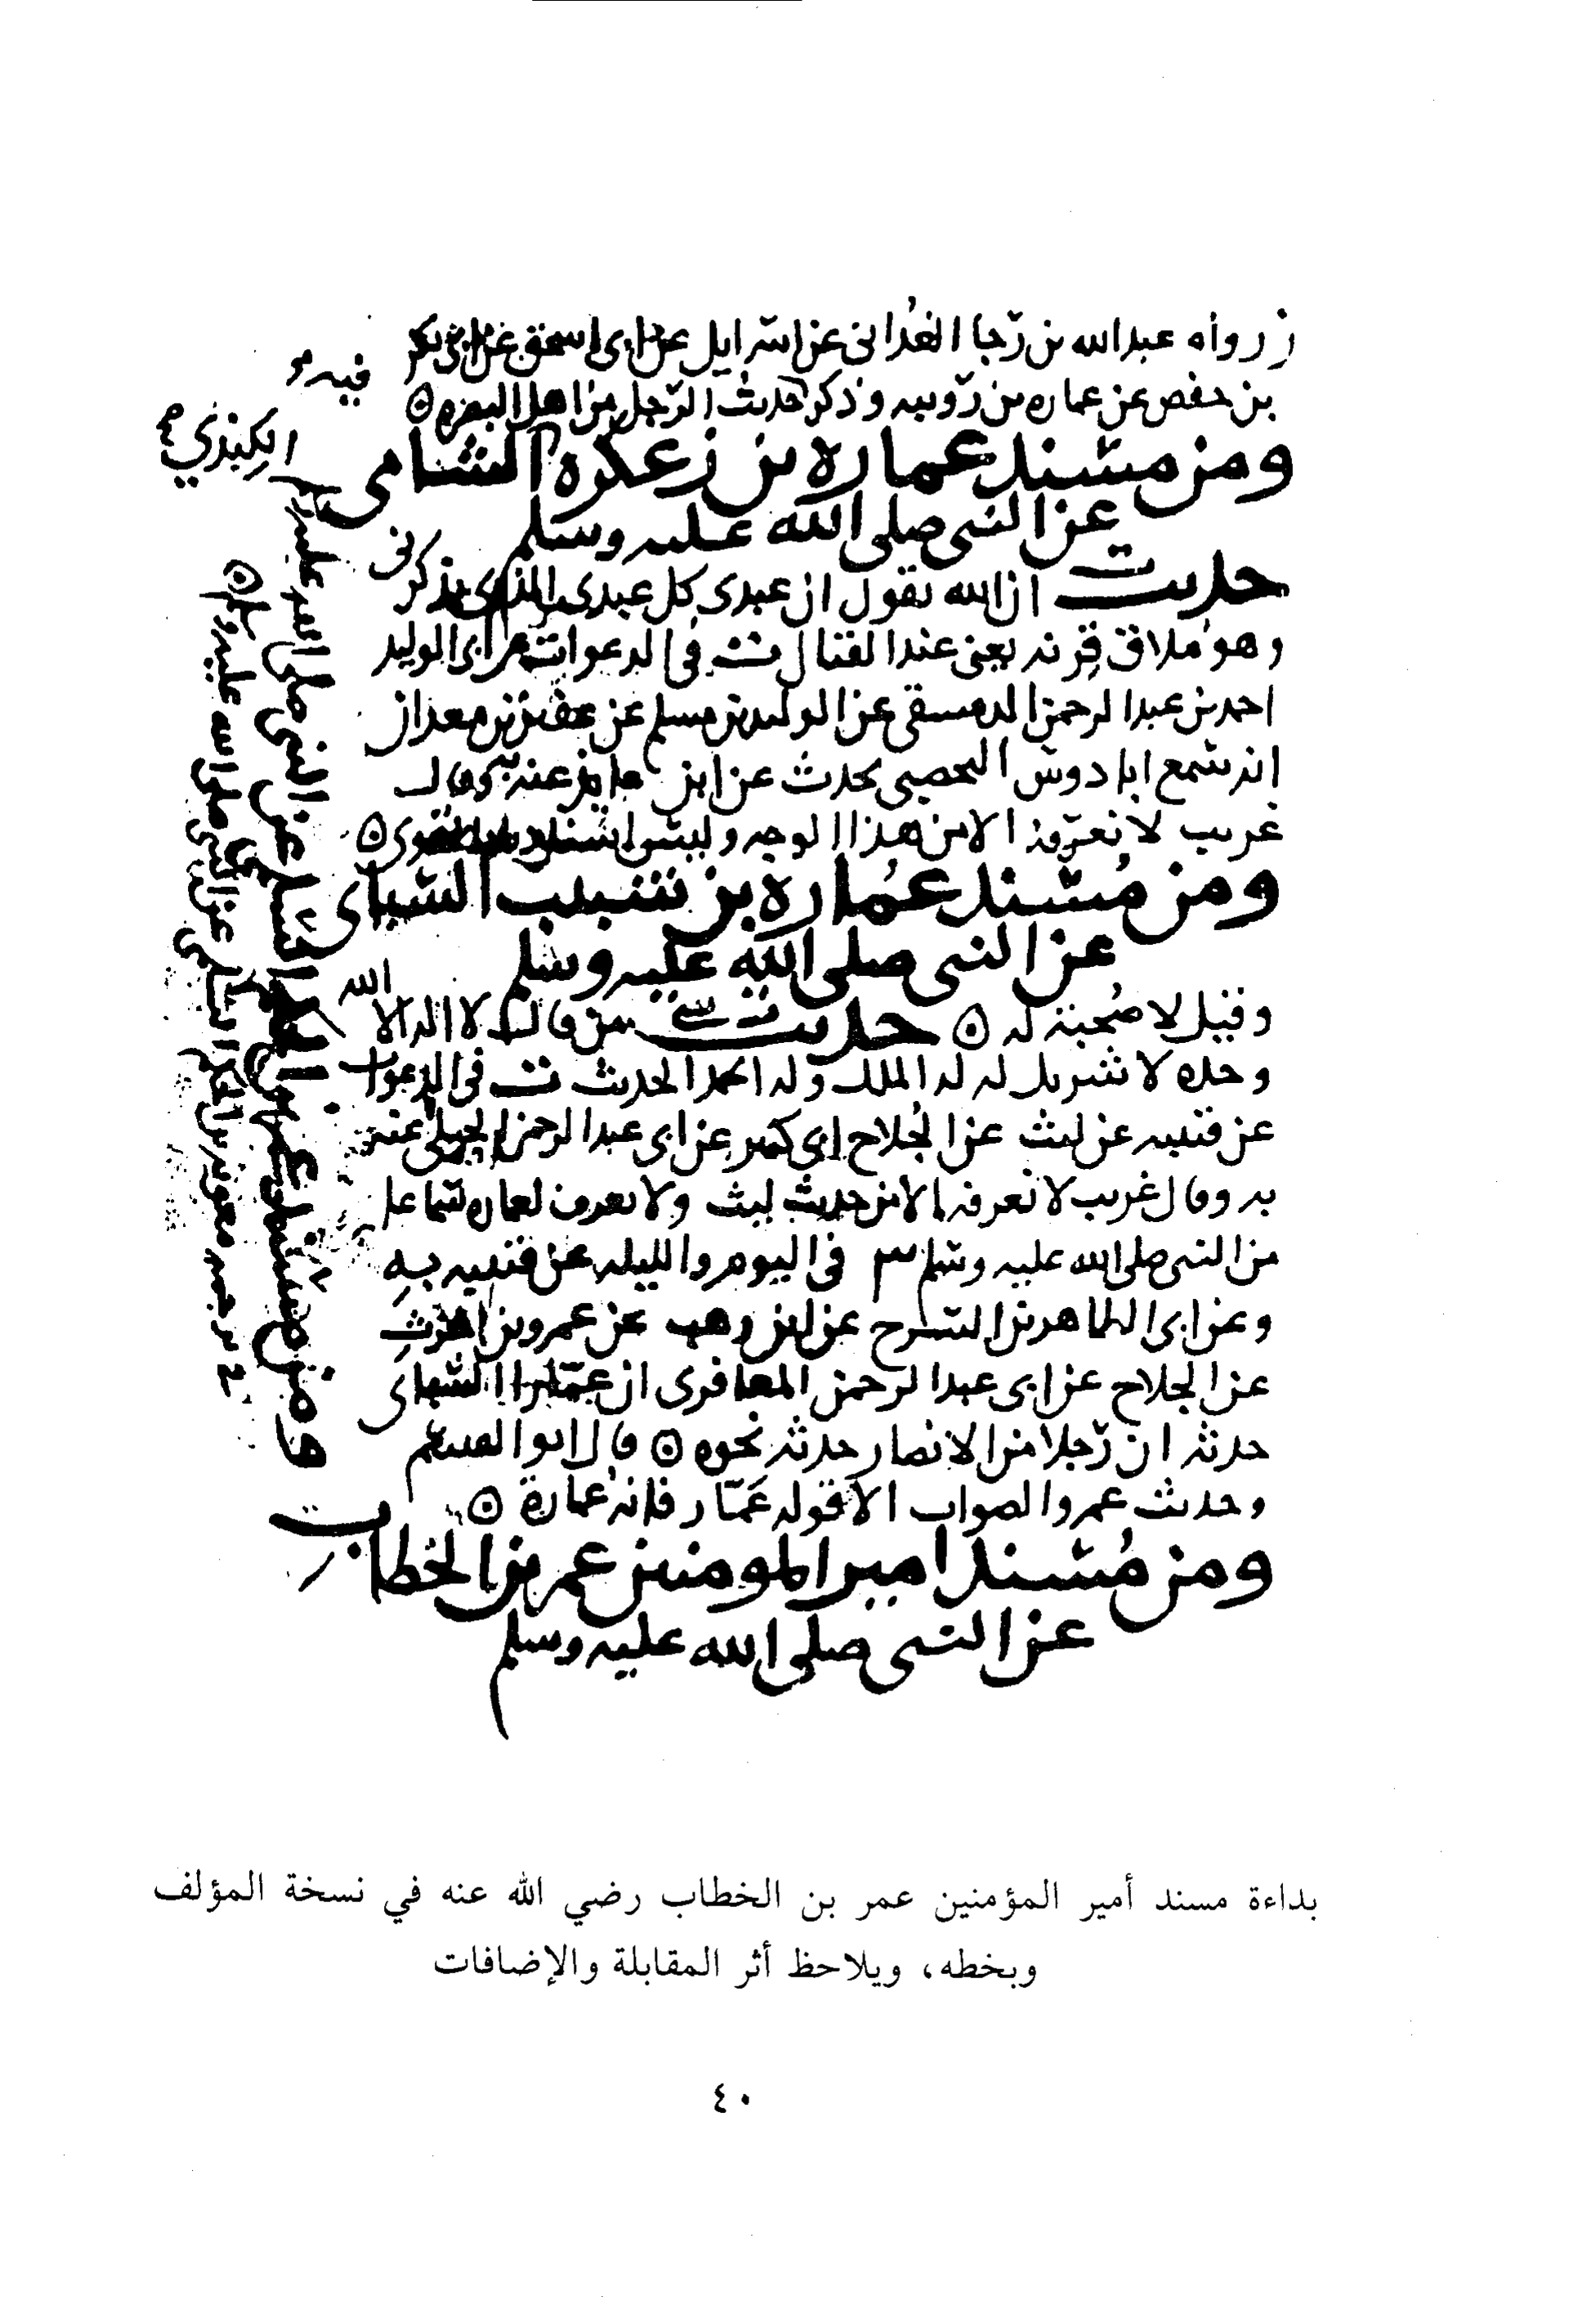 ز رواه عبد الله بن رجا الغداني عن اسرايل عن ابي اسحق عن ابي بكر
بن حفص عن عماره بن رويبه وذكر حديث الرجل من اهل البصره ه
فيه
ومن مسند عماره بن زعكره الشامي
الكندي
عن النبي صلى الله عليه وسلم
حديث ان الله يقول ان عبدي كل عبدي الذي يذكرني
وهو ملاق قرنه يعني عند القتال ت في الدعوات عن ابي الوليد
احمد بن عبد الرحمن الدمشقي عن الوليد بن مسلم عن عفير بن معدان
انه سمع ابا دوس اليحصبي يحدث عن ابن عايذ عنه به وقال
غريب لا نعرفه الا من هذا الوجه وليس اسناده بالقوي ه
ومن مسند عماره بن شبيب السباي
عن النبي صلى الله عليه وسلم
وقيل لا صحبة له ه حديث ت سي من قال لا اله الا الله
وحده لا شريك له له الملك وله الحمد الحديث ت في الدعوات
عن قتيبه عن ليث عن الجلاح ابي كثير عن ابي عبد الرحمن الحبلي عنه
به وقال غريب لا نعرفه الا من حديث ليث ولا نعرف لعماره سماعا
من النبي صلى الله عليه وسلم س في اليوم والليله عن قتيبه به
وعن ابي الطاهر بن السرح عن ابن وهب عن عمرو بن الحرث
عن الجلاح عن ابي عبد الرحمن المعافري ان عمارا السباي
حدثه ان رجلا من الانصار حدثه نحوه ه قال ابو القسم
وحديث عمرو الصواب الا قوله عمار فانه عمارة ه
ومن مسند امير المومنين عمر بن الخطاب
عن النبي صلى الله عليه وسلم
بداءة مسند أمير المؤمنين عمر بن الخطاب رضي الله عنه في نسخة المؤلف
وبخطه، ويلاحظ أثر المقابلة والإضافات
٤٠